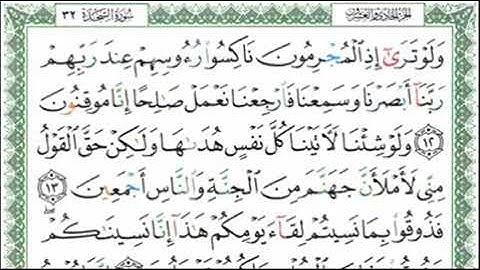 الجزء الحادي والعشرون سُورَةُ السَّجْدَةِ ٣٢
وَلَوْ تَرَىٰٓ إِذِ ٱلْمُجْرِمُونَ نَاكِسُوا۟ رُءُوسِهِمْ عِندَ رَبِّهِمْ
رَبَّنَآ أَبْصَرْنَا وَسَمِعْنَا فَٱرْجِعْنَا نَعْمَلْ صَـٰلِحًا إِنَّا مُوقِنُونَ
١٢ وَلَوْ شِئْنَا لَـَٔاتَيْنَا كُلَّ نَفْسٍ هُدَىٰهَا وَلَـٰكِنْ حَقَّ ٱلْقَوْلُ
مِنِّى لَأَمْلَأَنَّ جَهَنَّمَ مِنَ ٱلْجِنَّةِ وَٱلنَّاسِ أَجْمَعِينَ ١٣
فَذُوقُوا۟ بِمَا نَسِيتُمْ لِقَآءَ يَوْمِكُمْ هَـٰذَآ إِنَّا نَسِينَـٰكُمْ